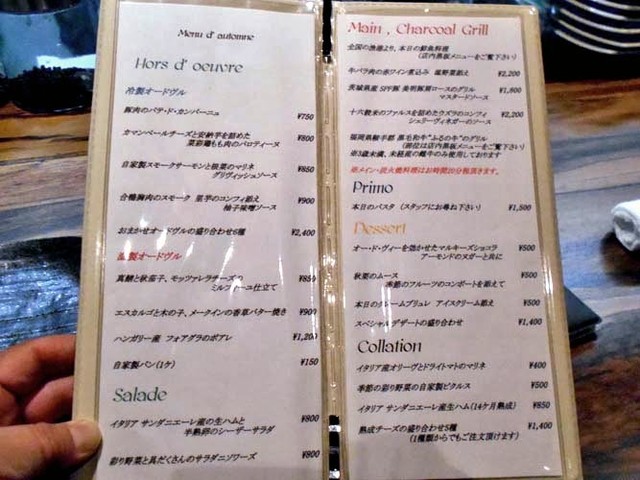 Menu d' automne
Hors d' oeuvre
冷製オードヴル
豚肉のパテ・ド・カンパーニュ ¥750
カマンベールチーズと安納芋を詰めた
菜彩鶏もも肉のバロティーヌ ¥800
自家製スモークサーモンと根菜のマリネ
グリヴィッシュソース ¥850
合鴨胸肉のスモーク 里芋のコンフィ添え
柚子味噌ソース ¥900
おまかせオードヴルの盛り合わせ6種 ¥2,400
温製オードヴル
真鯛と秋茄子、モッツァレラチーズの ¥850
ミルフィーユ仕立て
エスカルゴと木の子、メークインの香草バター焼き ¥900
ハンガリー産 フォアグラのポアレ ¥1,200
自家製パン(1ケ) ¥150
Salade
イタリア サンダニエーレ産の生ハムと ¥800
半熟卵のシーザーサラダ
彩り野菜と具だくさんのサラダニソワーズ ¥800
Main , Charcoal Grill
全国の漁港より、本日の鮮魚料理
(店内黒板メニューをご覧下さい)
牛バラ肉の赤ワイン煮込み 温野菜添え ¥2,200
茨城県産 SPF豚 美明豚肩ロースのグリル ¥1,800
マスタードソース
十六穀米のファルスを詰めたウズラのコンフィ ¥2,200
シェリーヴィネガーのソース
福岡県鞍手郡 黒毛和牛"ふるの牛"のグリル
(部位は店内黒板メニューをご覧下さい)
※3歳未満、未経産の雌牛のみ使用しております
※メイン・炭火焼料理はお時間20分程頂きます。
Primo
本日のパスタ (スタッフにお尋ね下さい) ¥1,500
Dessert
オー・ド・ヴィーを効かせたマルキーズショコラ ¥500
アーモンドのヌガーと共に
秋栗のムース ¥500
季節のフルーツのコンポートを添えて
本日のクレームブリュレ アイスクリーム添え ¥500
スペシャルデザートの盛り合わせ ¥1,400
Collation
イタリア産オリーヴとドライトマトのマリネ ¥400
季節の彩り野菜の自家製ピクルス ¥500
イタリア サンダニエーレ産生ハム(14ケ月熟成) ¥850
熟成チーズの盛り合わせ5種 ¥1,400
(1種類からでもご注文頂けます)